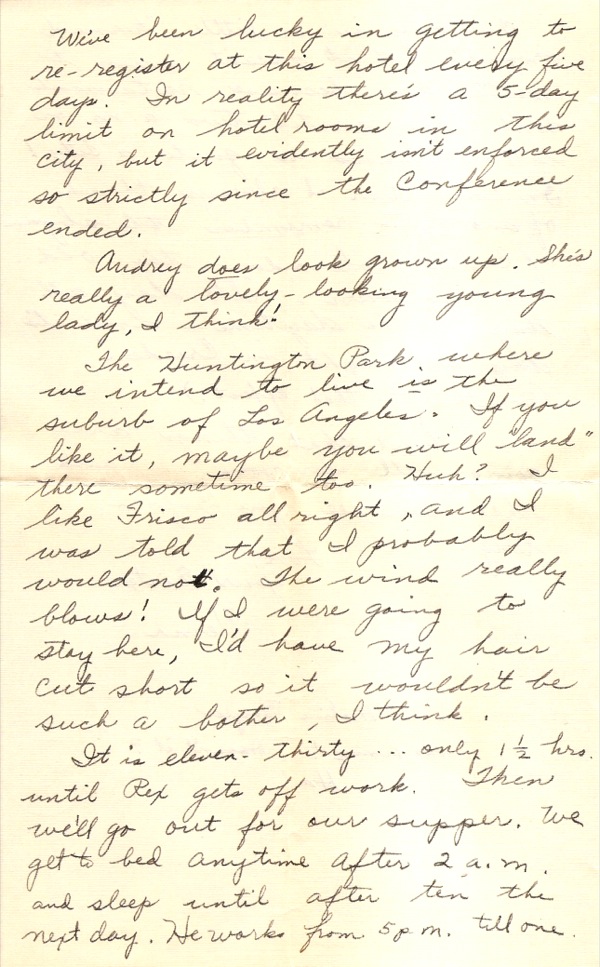 We've been lucky in getting to
re-register at this hotel every five
days. In reality there's a 5-day
limit on hotel rooms in this
city, but it evidently isn't enforced
so strictly since the Conference
ended.
Audrey does look grown up. She's
really a lovely-looking young
lady, I think!
The Huntington Park where
we intend to live is the
suburb of Los Angeles. If you
like it, maybe you will "land"
there sometime too. Huh? I
like Frisco all right, and I
was told that I probably
would not. The wind really
blows! If I were going to
stay here, I'd have my hair
cut short so it wouldn't be
such a bother, I think.
It is eleven-thirty ... only 1 1/2 hrs.
until Rex gets off work. Then
we'll go out for our supper. We
get to bed anytime after 2 a.m.
and sleep until after ten the
next day. He works from 5 p.m. till one.